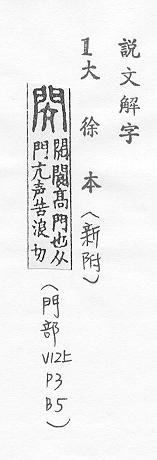 説文解字
1大徐本(新附)
閌
閌閬髙門也从
門亢声苦浪切
(門部V12上P3B5)